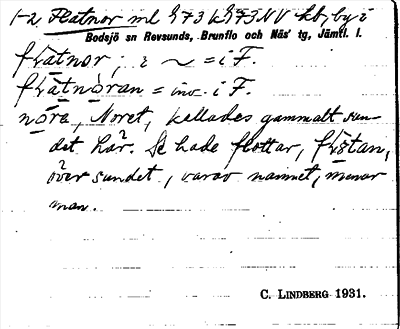 1-2 Flatnor ml h 73 k h73 NV kb, by i
Bodsjö sn Revsunds, Brunflo och Näs' tg, Jämtl. l.
flatnor; i ~ = i F.
flatnoran = inv. i F.
nora, Noret, kallades gammalt sun-
det här. De hade flottar, flötan,
över sundet, varav namnet, menar
man.
C. LINDBERG 1931.